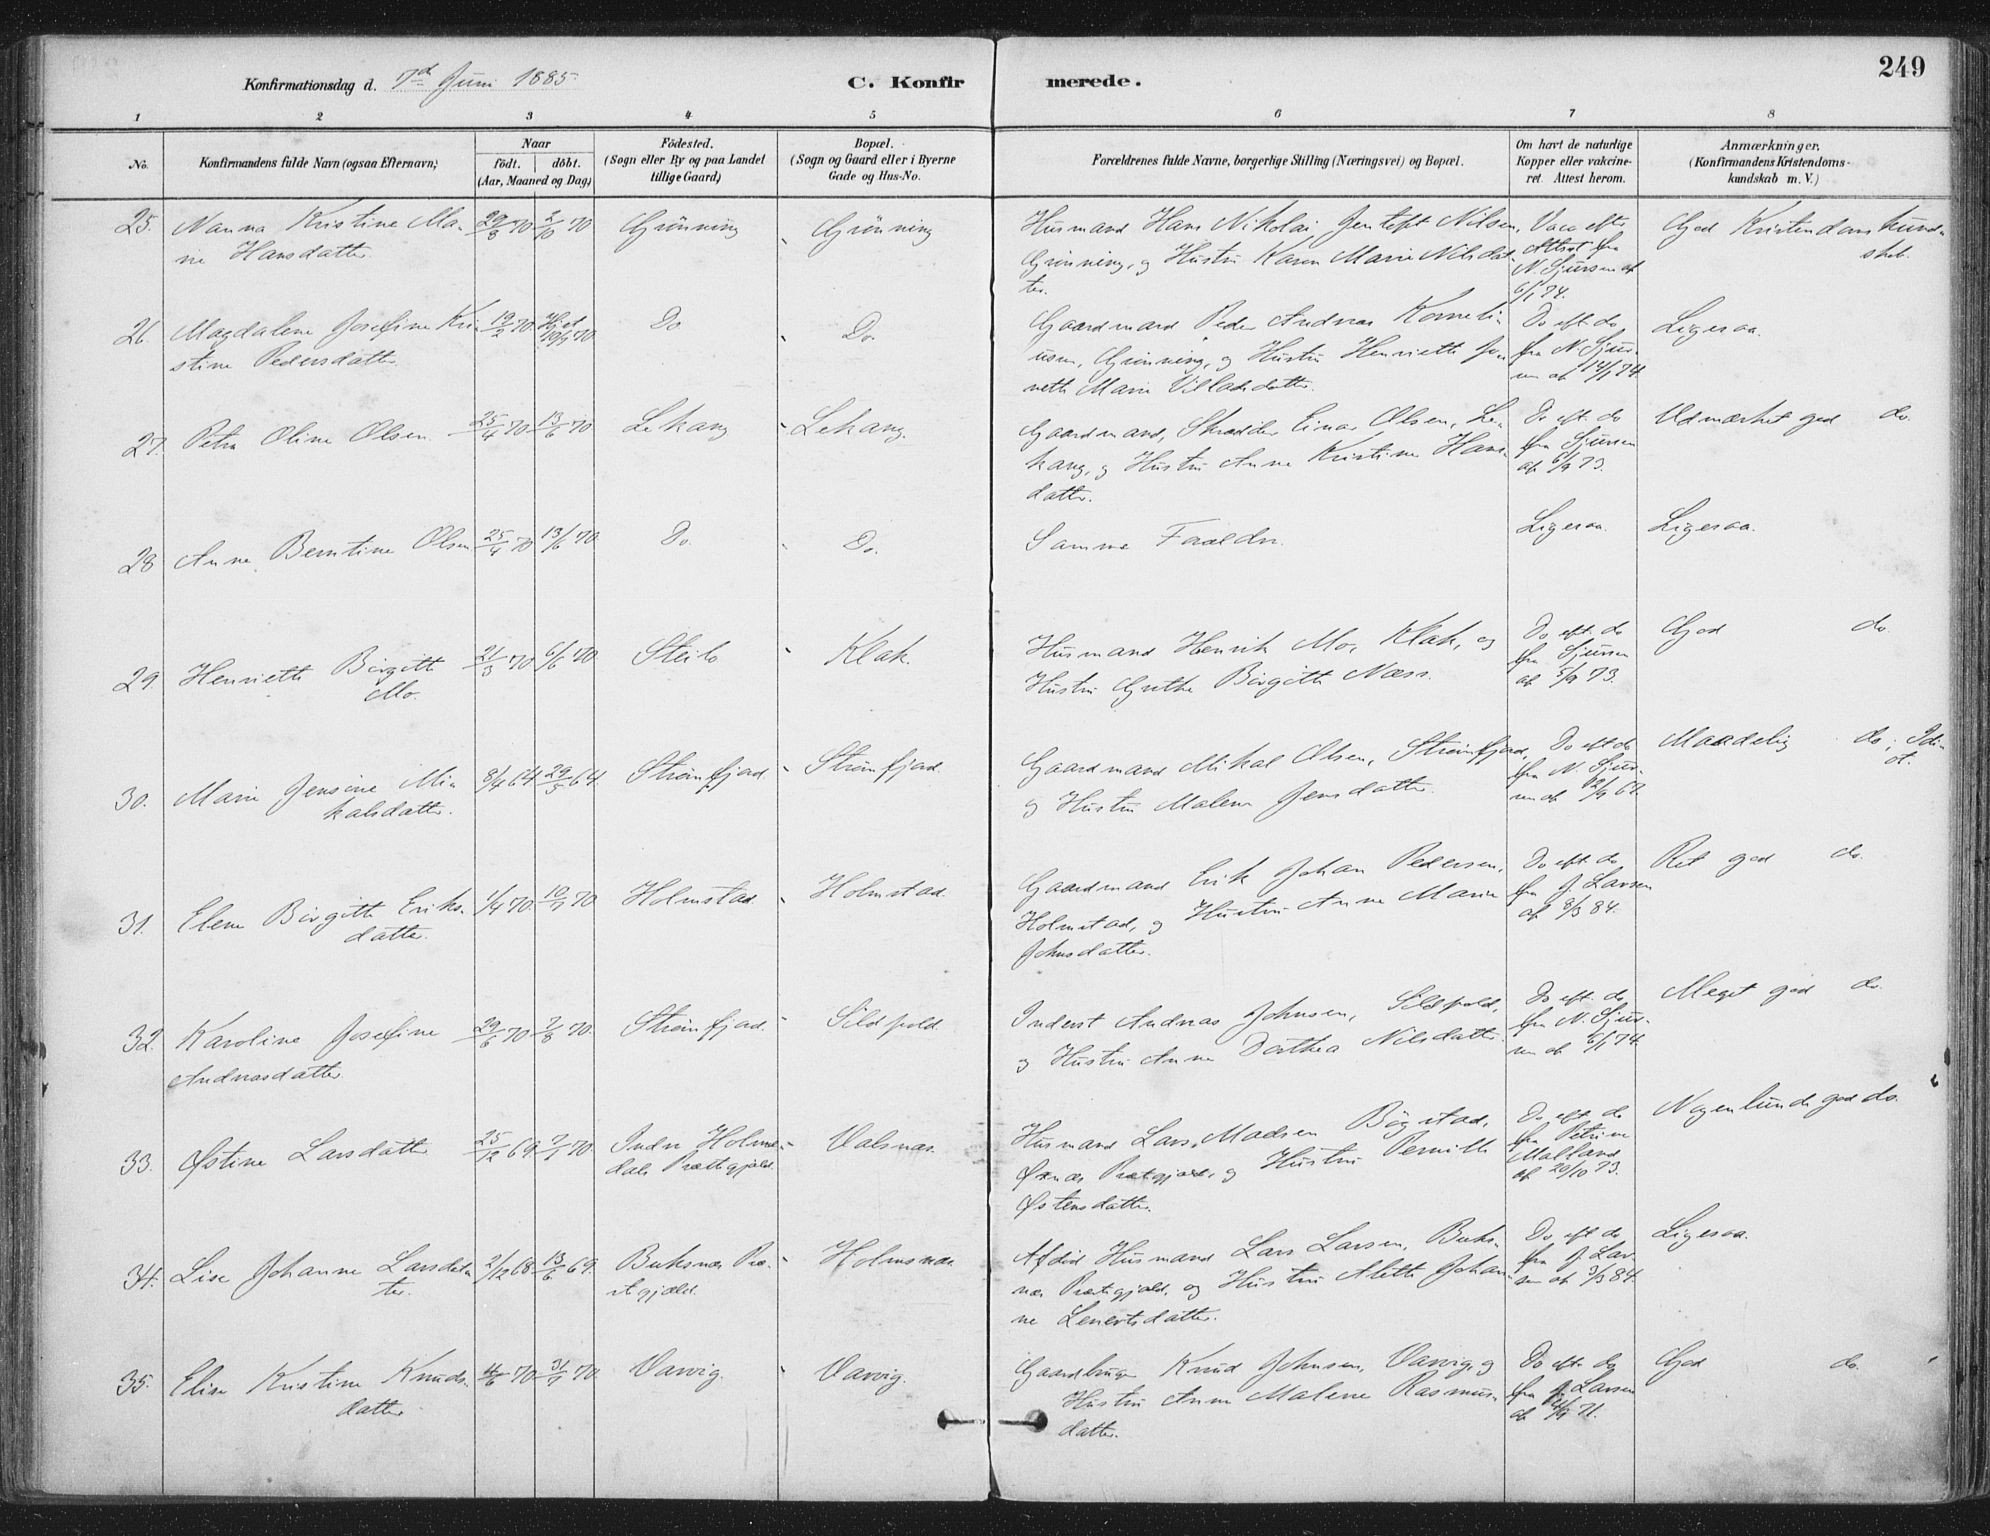 Konfirmationsdag d. 7d Juni 1885.
C. Konfirmerede.
249
1 2 3 4 5 6 7 8
No.
Konfirmandens fulde Navn (ogsaa Efternavn)
Naar
födt. döbt.
(Aar, Maaned og Dag)
Födested.
(Sogn eller By og paa Landet
tillige Gaard)
Bopæl.
(Sogn og Gaard eller i Byerne
Gade og Hus-No.
Forældrenes fulde Navne, borgerlige Stilling (Næringsvei) og Bopæl.
Om havt de naturlige
Kopper eller vakcine-
ret. Attest herom.
Anmærkninger.
(Konfirmandens Kristendoms-
kundskab m. V.)
25. Nanna Kristine Ma- 29/8 70 2/10 70 Grönning Grönning Husmand Hans Nikolai Jentoft Nilsen, Vacc efter God Kristendomskund-
ne Hansdatter. Grönning, og Hustru Karen Marie Nilsdat- Attest fra skab.
ter. N. Sjursen af
6/1 74.
26. Magdalene Josefine Kri- 19/2 70 Do Do. Gaardmand Peder Andreas Korneli- Do eft. do Ligesaa.
stine Pedersdatter. usen, Grönning, og Hustru Henriette fra N. Sjur-
Marie Villadsdatter. sen af 14/1 74.
27. Petra Oline Olsen. 25/4 70 13/6 70 Lekang Lekang. Gaardmand, Skrædder Einar Olsen, Le- Do eft. do Udmærket god do.
kang, og Hustru Anne Kristine Hans- fra Sjursen
datter. af 6/9 73.
28 Anne Berntine Olsen 25/4 70 13/6 70 Do. Do. Samme Forældre. Ligesaa. Ligesaa.
29. Henriette Birgitte 21/3 70 6/6 70 Steilo Klak. Husmand Henrik Mo, Klak, og Do eft. do God do.
Mo. Hustru Grethe Birgitte Næss. fra Sjursen
af 5/9 73.
30. Marie Jensine Mi- 8/4 64 29/5 64. Strömfjord Strömfjord. Gaardmand Mikal Olsen, Strömfjord, Do eft do Maadelig do; Idi-
kalsdatter. og Hustru Malene Jensdatter. fra N. Sjur- ot.
sen af 12/9 67.
31. Elene Birgitte Eriks- 1/4 70. 10/7 70 Holmstad. Holmstad. Gaardmand Erik Johan Pedersen, Do eft. do Ret god do.
datter. Holmstad, og Hustru Anne Marie fra J. Larsen
Johnsdatter. af 8/3 84.
32. Karoline Josefine 29/6 70 7/8 70. Strömfjord. Sildpold. Inderst Andreas Johnsen, Sildpold, Do eft. do Meget god do.
Andreasdatter og Hustru Anne Dorthea Nilsdatter. fra N. Sjur-
sen af 6/1 74.
33. Østine Larsdatter 25/12 69 7/1 70. Indre Holme- Valsnæs. Husmand Lars Madsen Bögstad, Do eft. do Nogenlunde god do.
dals Præstegjæld. Øxnæs Præstegjæld, og Hustru Pernille fra Petrine
Østensdatter. Malland
af 20/10 73.
34. Lise Johanne Larsdat- 2/12 68 13/6 69. Buksnæs Præ- Holmsnæs Afdöd Husmand Lars Larsen, Buks- Do eft do Ligesaa.
ter. stegjæld. næs Præstegjæld, og Hustru Alette Johan- fra J. Lar-
ne Lenertsdatter. sen af 3/3 84.
35. Elise Kristine Knuds- 4/6 70 31/7 70. Varvig. Varvig. Gaardbruger Knud Johnsen, Varvig, og Do eft. do God do.
datter Hustru Anne Malene Rasmus- fra J. Larsen
datter. 71.